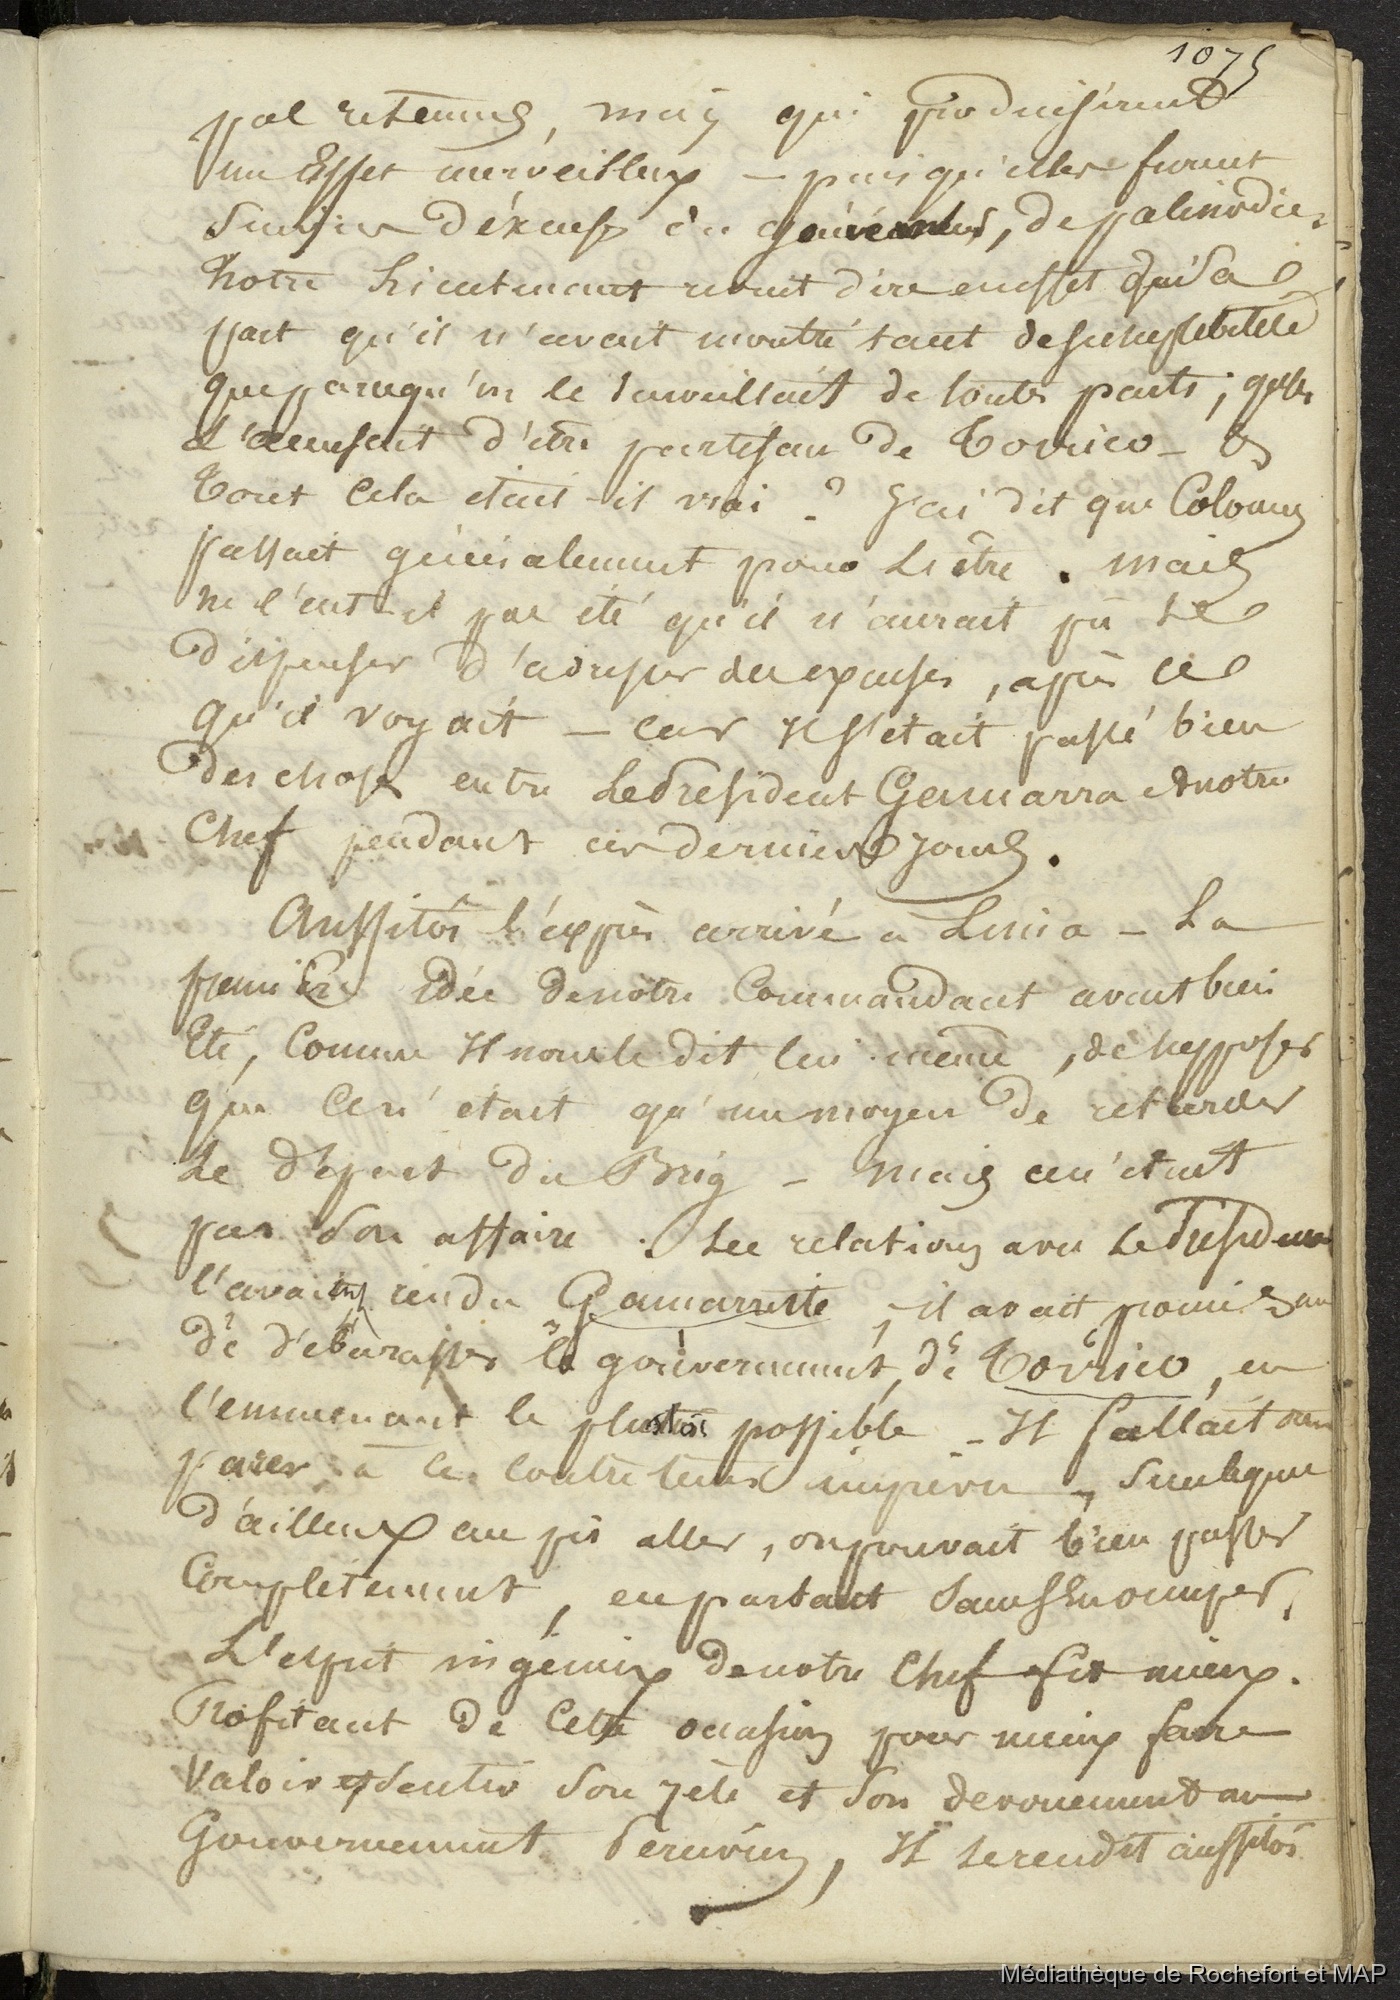 1075
pas retenues, mais qui produisirent
un Effet merveilleux — puis qu'elles furent
Suivies d'excuses du gouverneur, de palinodies.
Notre Lieutenant revint dire eneffet deSa
part qu'il n'avait montré tant desusceptibilité
que parcequ'on le Surveillait de toutes parts; qu'on
L'accusait d'être partisan de Torrico — &
Tout Cela était-il vrai? J'ai dit que Coloma
passait généralement pour L'être. mais
ne l'eut-il pas été qu'il n'aurait pu Se
dispenser d'adresser des excuses, après ce
qu'il voyait — car Il s'etait passé bien
des choses entre LePrésident Gamarra etnotre
Chef pendant ces derniers jours.
Aussitôt l'exprès arrivé à Lima — La
premiere Idée denotre Commandant avait bien
Eté, Comme Il nousle dit lui même, de supposer
que Ce n'était qu'un moyen de retarder
Le départ du Brig — mais cen'était
pas Son affaire. Ses relations avec LePrésident
l'avaient rendu Gamarriste; il avait promis
de débarasser le gouvernement de Torrico, en
l'emmenant le plustôt possible — Il fallait
parer à ce contre tems imprévu —, Surlequel
d'ailleurs au pis aller, onpouvait bien passer
Complètement, en partant Sans S'enoccuper.
L'esprit ingénieux denotre Chef fit mieux.
Profitant de Cette occasion pour mieux faire
Valoir et Sentir Son zèle et Son devouement au
Gouvernement Peruvien, Il Serendit aussitôt
Médiathèque de Rochefort et MAP